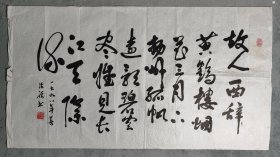 故人西辞
黄鹤楼烟
花三月下
扬州孤帆
远影碧空
尽惟见长
江天际
流
一九九八年春
书